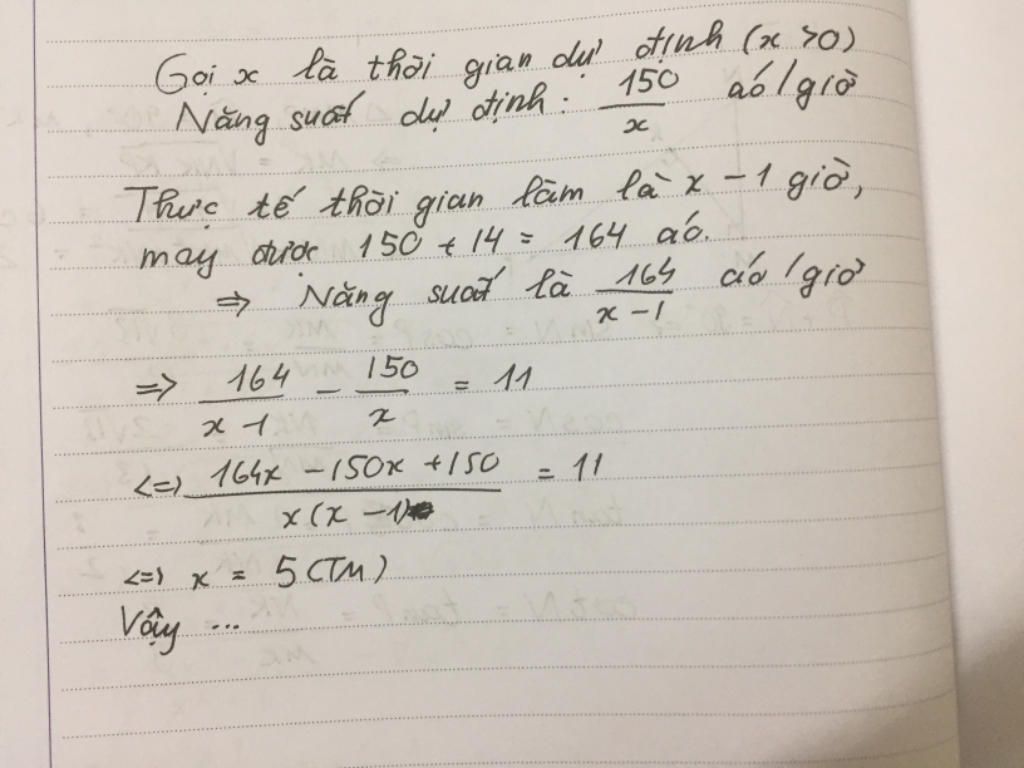 Gọi x là thời gian dự định (x > 0)
Năng suất dự định: 150/x áo/giờ
Thực tế thời gian làm là x - 1 giờ,
may được 150 + 14 = 164 áo.
=> Năng suất là 164/(x - 1) áo/giờ
=> 164/(x - 1) - 150/x = 11
<=> (164x - 150x + 150)/(x(x - 1)) = 11
<=> x = 5 (TM)
Vậy ...